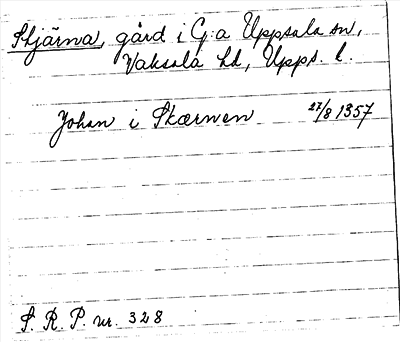 Stjärna, gård i G:a Uppsala sn,
Vaksala hd, Upps. l.
Johan i Skærnen 27/8 1357
S. R. P. nr. 328